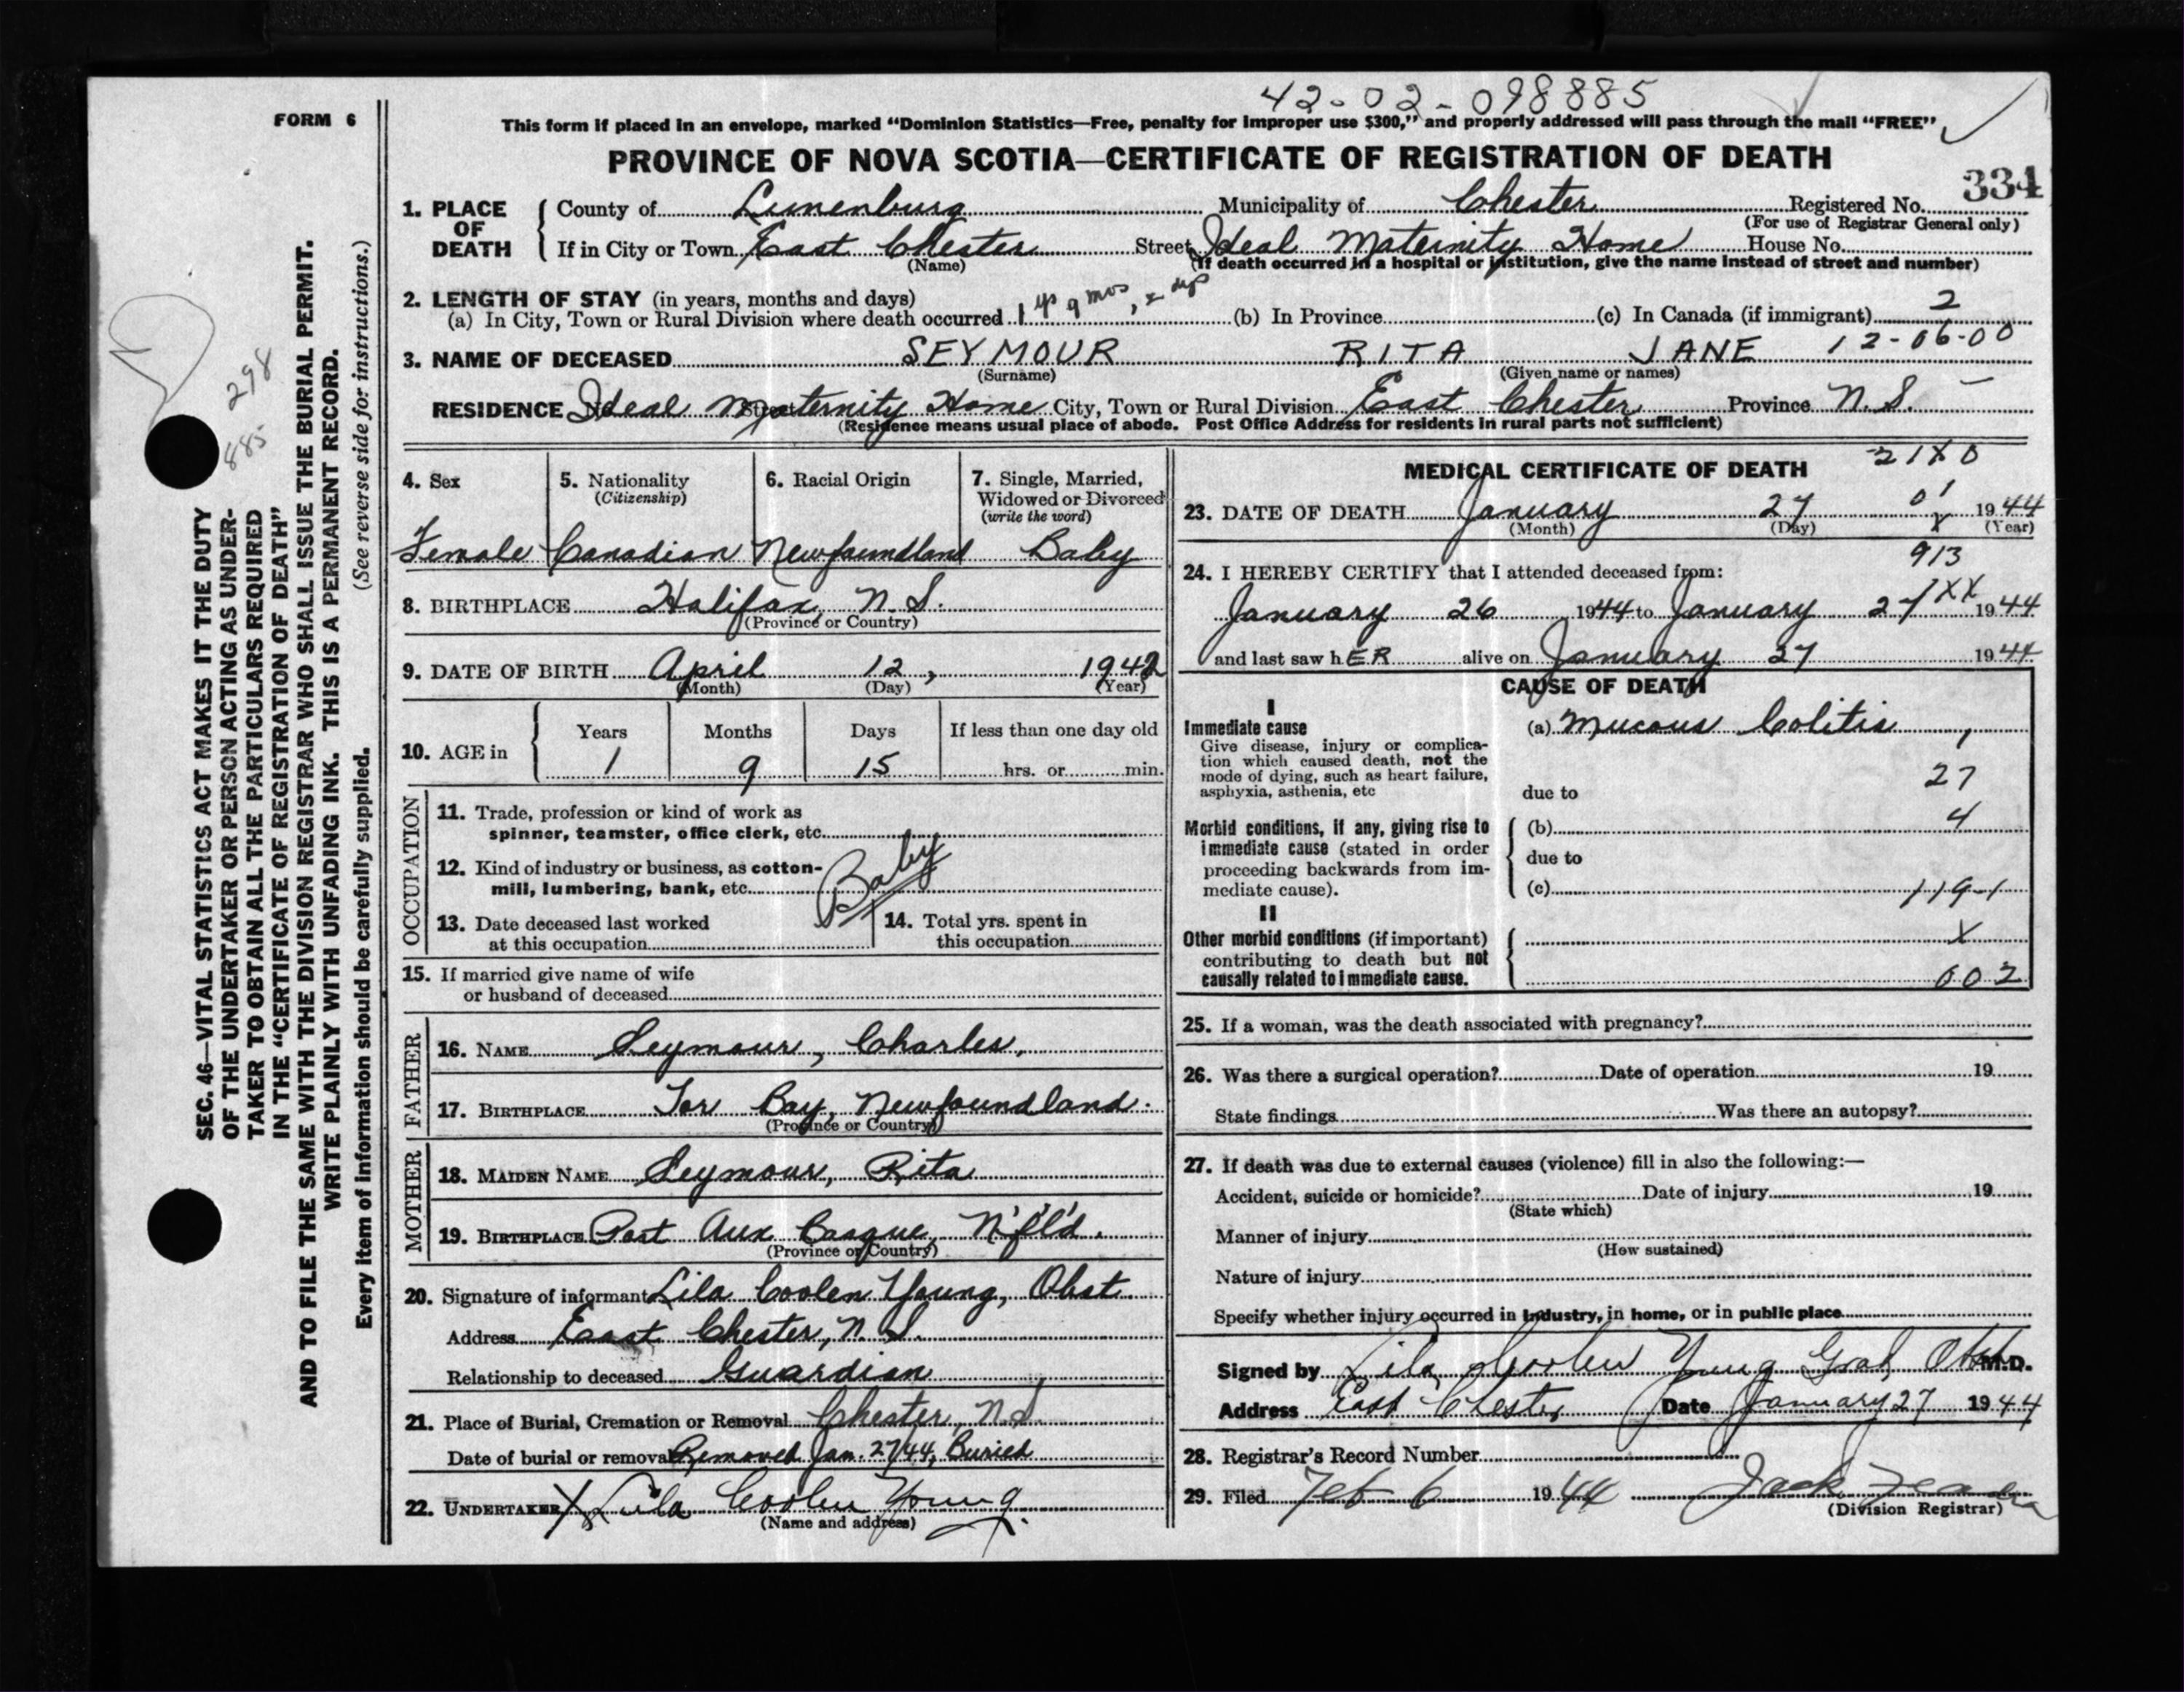 42-02-098885
FORM 6
This form if placed in an envelope, marked “Dominion Statistics—Free, penalty for improper use $300,” and properly addressed will pass through the mail “FREE”
PROVINCE OF NOVA SCOTIA—CERTIFICATE OF REGISTRATION OF DEATH
334
1. PLACE OF DEATH
County of Lunenburg Municipality of Chester Registered No.
(For use of Registrar General only)
If in City or Town East Chester Street Ideal Maternity Home House No.
(Name) (If death occurred in a hospital or institution, give the name instead of street and number)
2. LENGTH OF STAY (in years, months and days)
(a) In City, Town or Rural Division where death occurred 1 yr 9 mos, 2 dys (b) In Province (c) In Canada (if immigrant) 2
3. NAME OF DECEASED SEYMOUR RITA JANE 12-06-00
(Surname) (Given name or names)
RESIDENCE Ideal Maternity Home City, Town or Rural Division East Chester Province N.S.
Street
(Residence means usual place of abode. Post Office Address for residents in rural parts not sufficient)
4. Sex
Female
5. Nationality
(Citizenship)
Canadian
6. Racial Origin
Newfoundland
7. Single, Married,
Widowed or Divorced
(write the word)
Baby
8. BIRTHPLACE Halifax, N.S.
(Province or Country)
9. DATE OF BIRTH April 12, 1942
(Month) (Day) (Year)
10. AGE in
Years Months Days If less than one day old
1 9 15 hrs. or min.
OCCUPATION
11. Trade, profession or kind of work as
spinner, teamster, office clerk, etc.
12. Kind of industry or business, as cotton-
mill, lumbering, bank, etc.
Baby
13. Date deceased last worked
at this occupation
14. Total yrs. spent in
this occupation
15. If married give name of wife
or husband of deceased
FATHER
16. NAME Seymour, Charles,
17. BIRTHPLACE Tor Bay, Newfoundland.
(Province or Country)
MOTHER
18. MAIDEN NAME Seymour, Rita
19. BIRTHPLACE Port Aux Basque, N'f'l'd.
(Province or Country)
20. Signature of informant Lila Coolen Young, Obst
Address East Chester, N.S.
Relationship to deceased Guardian
21. Place of Burial, Cremation or Removal Chester, N.S.
Date of burial or removal Removed Jan. 27/44, Buried
22. UNDERTAKER X Lila Coolen Young
(Name and address)
MEDICAL CERTIFICATE OF DEATH 21X0
23. DATE OF DEATH January 27 01 1944
(Month) (Day) X (Year)
913
24. I HEREBY CERTIFY that I attended deceased from:
January 26 1944 to January 27 XX 1944
and last saw hER alive on January 27 1944
CAUSE OF DEATH
I
Immediate cause
Give disease, injury or complica-
tion which caused death, not the
mode of dying, such as heart failure,
asphyxia, asthenia, etc
(a) Mucous Colitis 1
27
due to
Morbid conditions, if any, giving rise to
immediate cause (stated in order
proceeding backwards from im-
mediate cause).
(b) 4
due to
(c) 119-1
II
Other morbid conditions (if important)
contributing to death but not
causally related to immediate cause.
X
602
25. If a woman, was the death associated with pregnancy?
26. Was there a surgical operation? Date of operation 19
State findings Was there an autopsy?
27. If death was due to external causes (violence) fill in also the following:—
Accident, suicide or homicide? Date of injury 19
(State which)
Manner of injury
(How sustained)
Nature of injury
Specify whether injury occurred in industry, in home, or in public place
Signed by Lila Coolen Young Grad, Obst M.D.
Address East Chester Date January 27 1944
28. Registrar's Record Number
29. Filed Feb 6 1944 Jack
(Division Registrar)
298
885
SEC. 46—VITAL STATISTICS ACT MAKES IT THE DUTY
OF THE UNDERTAKER OR PERSON ACTING AS UNDER-
TAKER TO OBTAIN ALL THE PARTICULARS REQUIRED
IN THE “CERTIFICATE OF REGISTRATION OF DEATH”
AND TO FILE THE SAME WITH THE DIVISION REGISTRAR WHO SHALL ISSUE THE BURIAL PERMIT.
WRITE PLAINLY WITH UNFADING INK. THIS IS A PERMANENT RECORD.
Every item of information should be carefully supplied. (See reverse side for instructions.)